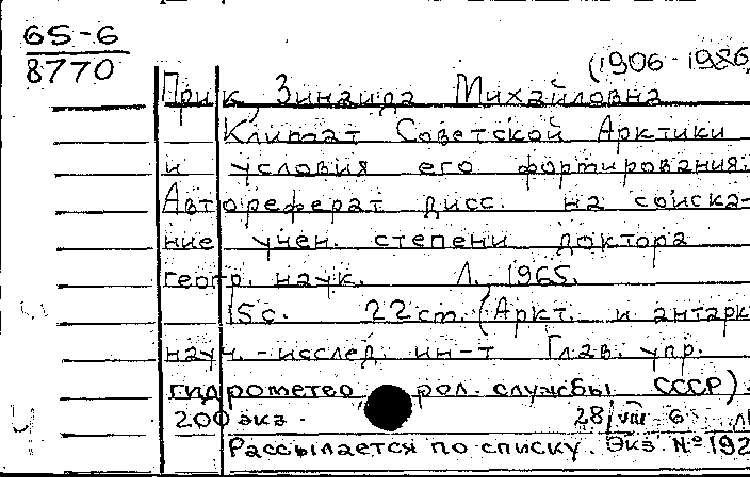 65-6
8770
(1906-1986
Прик, Зинаида Михайловна
Климат Советской Арктики
и условия его формирования.
Автореферат дисс. на соиска-
ние учен. степени доктора
геогр. наук. Л. 1965.
15 с. 22 см. (Аркт. и антарк
науч.-исслед. ин-т Глав. упр.
гидрометео рол. службы СССР).
200 экз. 28/VIII 6
Рассылается по списку. Экз. № 192